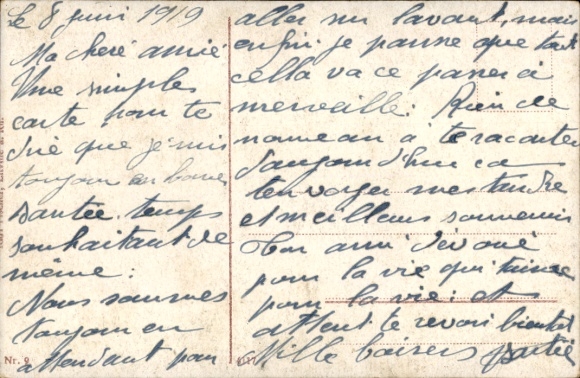 Le 8 juin 1919
Ma cheré amié
Une simples
carte pour te
dire que je suis
toujour en bonne
santée. temps
souhaitant de
même:
Nous sommes
toujour en
attendant pour
aller sur l'avant, mais
enfin je panse que tout
cella va ce passer à
merveille: Rien de
nouveau à te raconter
d'aujour d'hui ca
t'envoyer mes tandre
et meilleurs souvenirs
ton ami dévoué
pour la vie qui t'aime
pour la vie: et
attent te revoir bientot
Mille baisers
Nr. 9